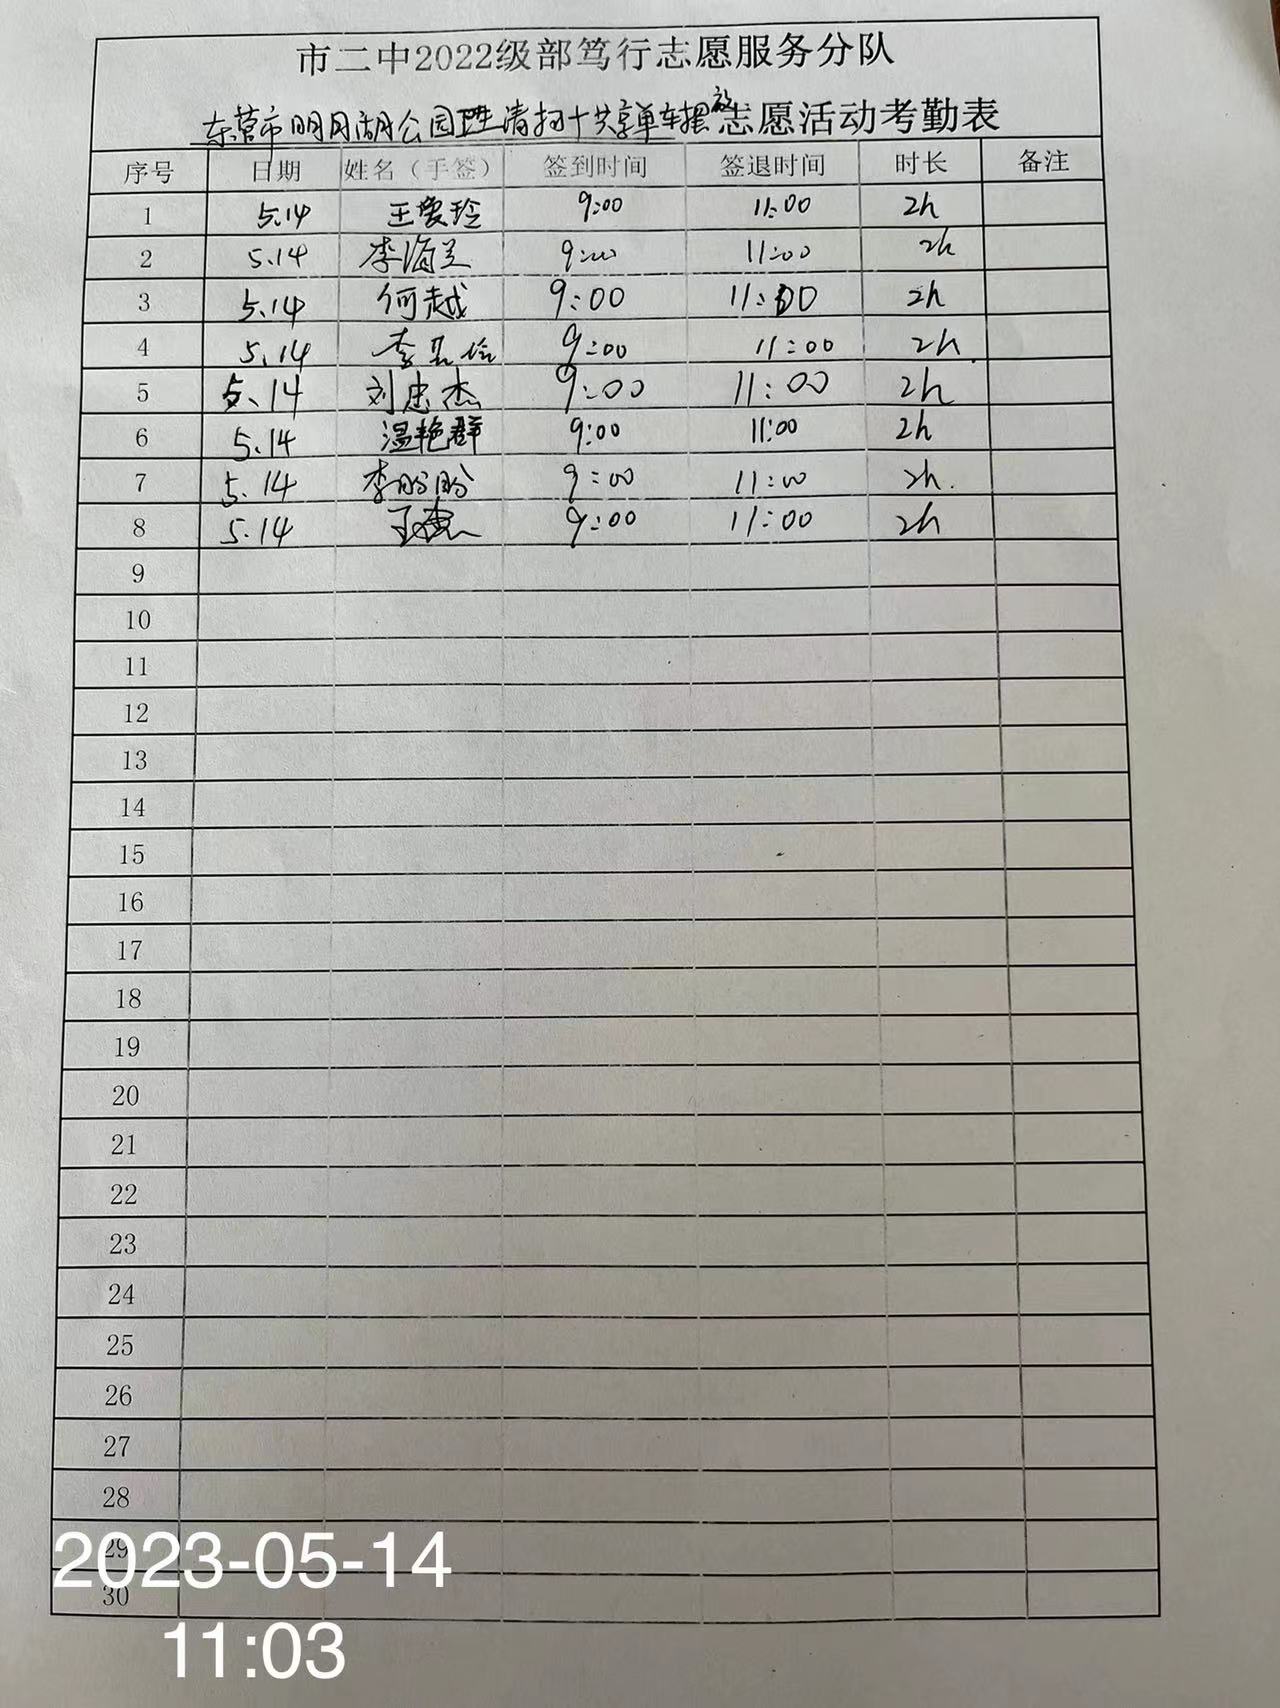 市二中2022级部笃行志愿服务分队
东营市明月湖公园垃圾清扫+共享单车摆放志愿活动考勤表
序号 日期 姓名（手签） 签到时间 签退时间 时长 备注
1 5.14 王爱玲 9:00 11:00 2h
2 5.14 李海兰 9:00 11:00 2h
3 5.14 何越 9:00 11:00 2h
4 5.14 李 9:00 11:00 2h.
5 5.14 刘忠杰 9:00 11:00 2h
6 5.14 温艳群 9:00 11:00 2h
7 5.14 李盼盼 9:00 11:00 2h.
8 5.14 王 9:00 11:00 2h
9
10
11
12
13
14
15
16
17
18
19
20
21
22
23
24
25
26
27
28
29
30
2023-05-14
11:03